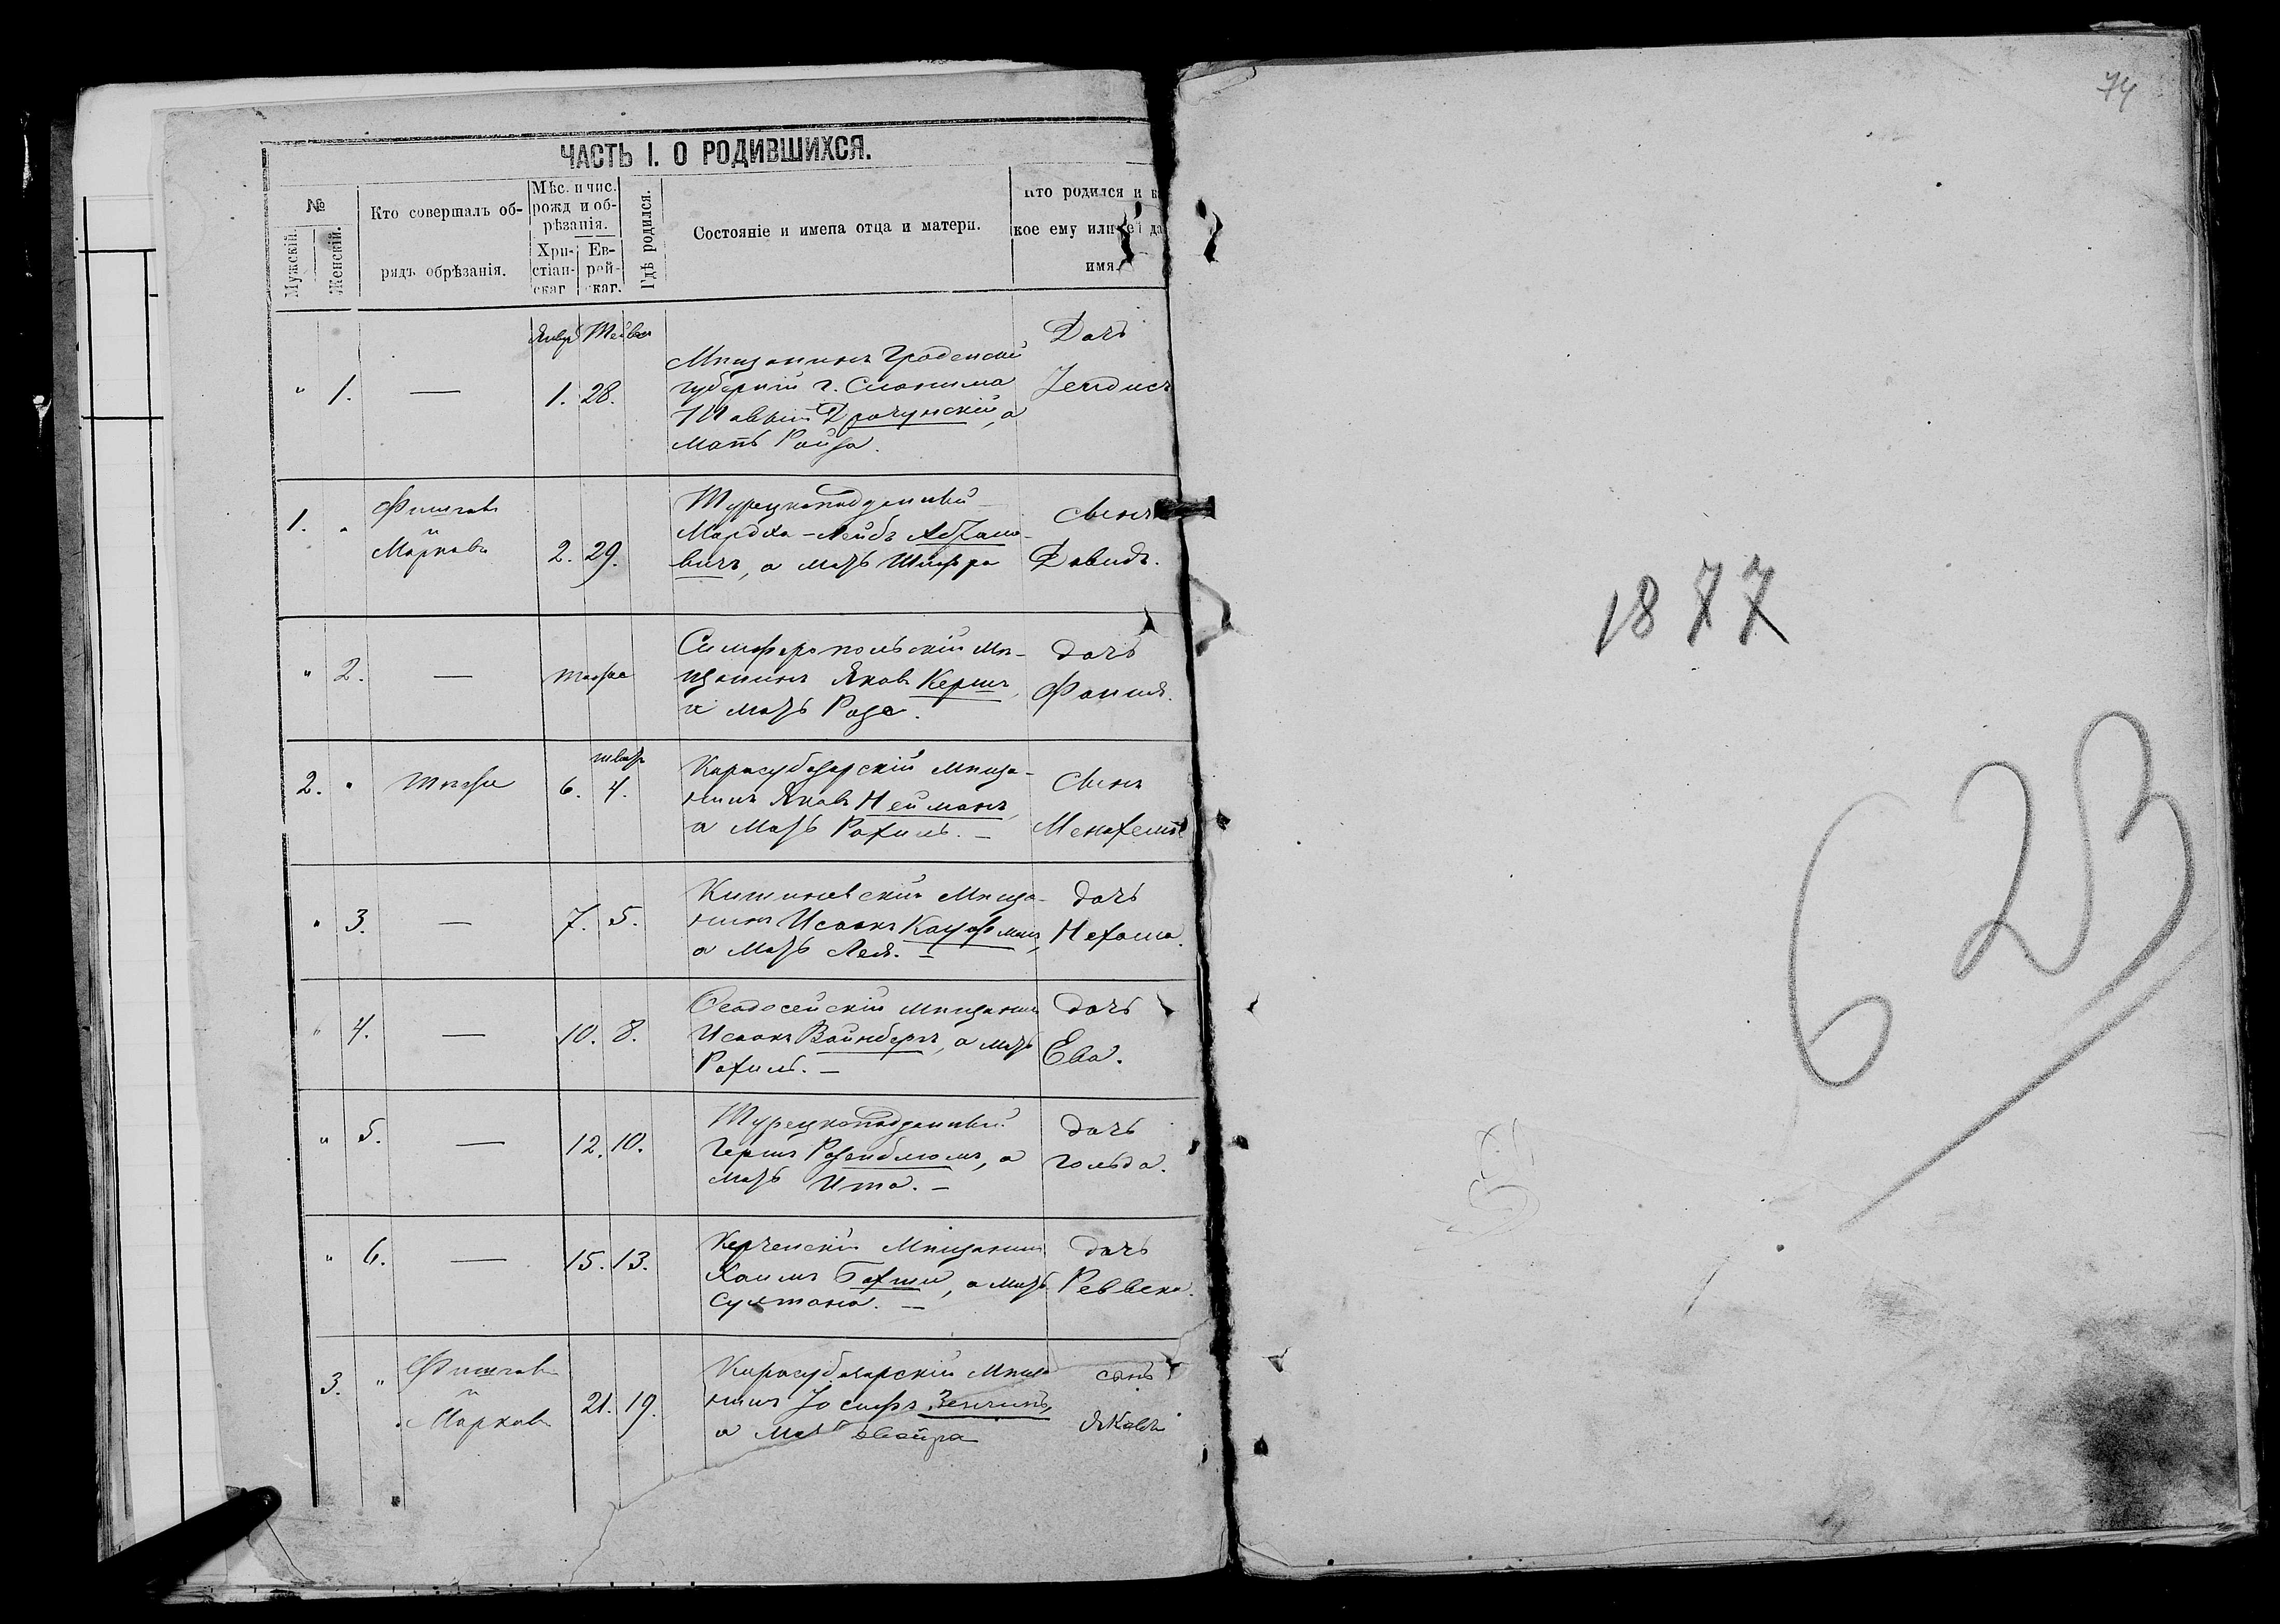 ЧАСТЬ I. О РОДИВШИХСЯ.
№
Мужскій.
Женскій.
Кто совершалъ об-
рядъ обрѣзанія.
Мѣс. и чис.
рожд и об-
рѣзанія.
Хри-
стіан-
скаг
Ев-
рей-
скаг.
Гдѣ родился.
Состояніе и имена отца и матери.
Кто родился и ка
кое ему или ей да
имя.
" 1. — 1. 28.
Мѣщанинъ Гроденской
губерніи г. Слонима
а
мать Ройза.
Дочь
1. " Фишговъ
и
Марковъ
2. 29.
Турецкоподданный
Мордха-Лейбъ Абрамо-
вичъ, а мать Шифра
Сынъ
Давидъ.
" 2. — тоже
Симферопольскій мѣ-
щанинъ Яковъ Кершъ,
а мать Роза.
дочь
Фаня.
2. " тоже 6. 4.
Карасубазарскій мѣща-
нинъ Яковъ Нейманъ,
а мать Рахиль. —
Сынъ
Менахемъ
" 3. — 7. 5.
Кишиневскій мѣща-
нинъ Исаакъ Кауфманъ,
а мать Лея. —
дочь
Нехама.
" 4. — 10. 8.
Ѳеодосейскій мѣщанинъ
Исаакъ Вайнбергъ, а мать
Рахиль. —
дочь
Ева.
" 5. — 12. 10.
Турецкоподданный
Гершъ Розенблюмъ, а
мать Ита. —
дочь
Гольда.
" 6. — 15. 13.
Керченскій мѣщанинъ
Хаимъ Бахши, а мать
Султана. —
дочь
Реввека.
3. " Фишговъ
и
Марковъ
21. 19.
Карасубазарскій мѣща
нинъ Іосифъ
а мать Двойра
сынъ
Яковъ
74
1877
623